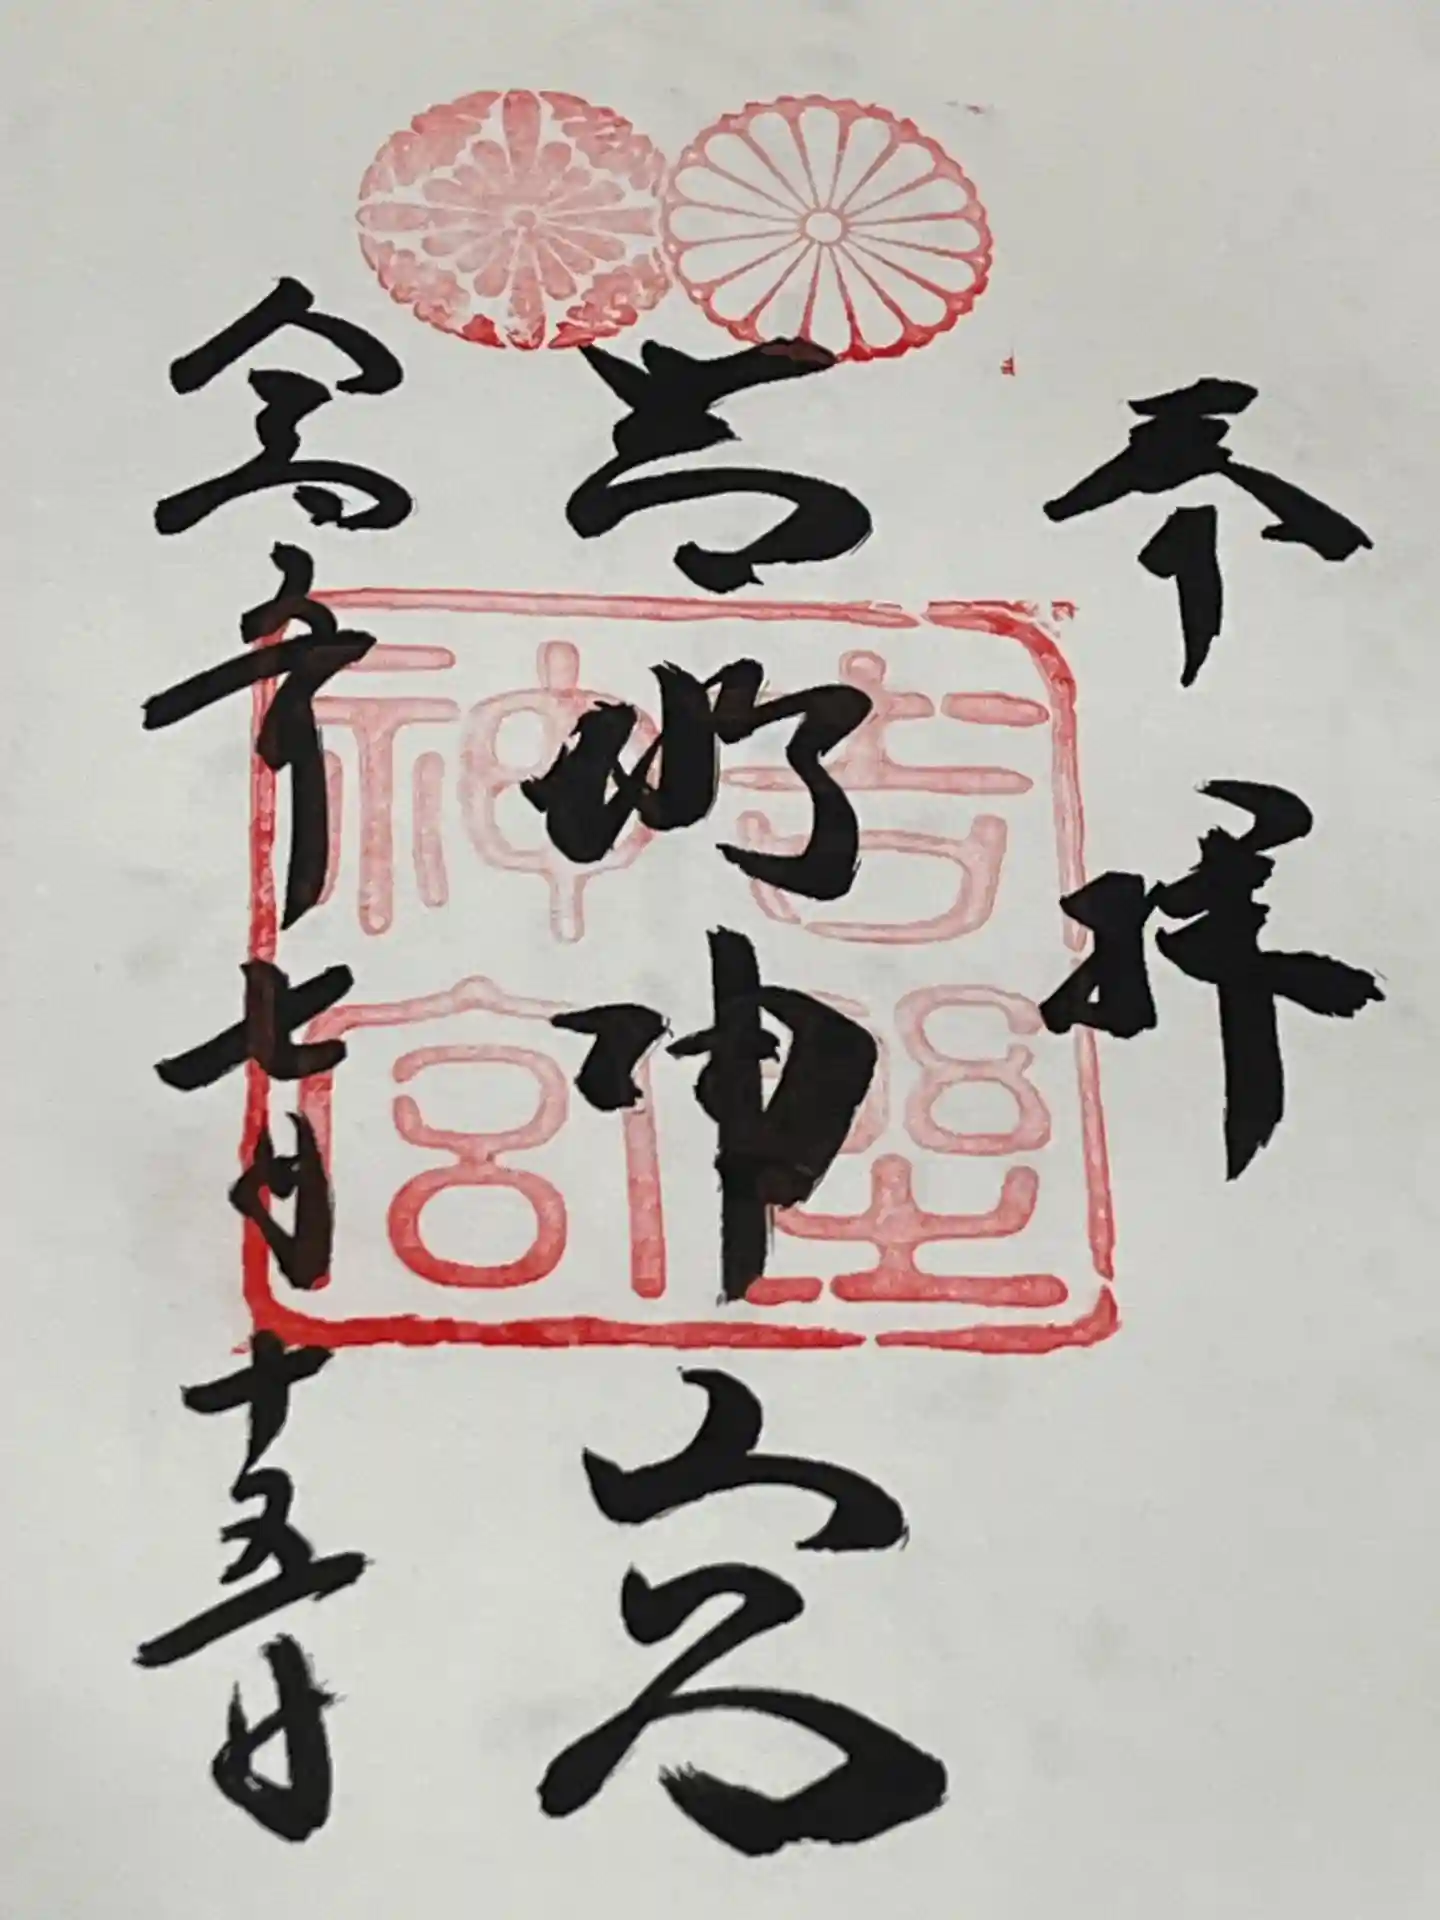 奉拝
吉野神宮
令年七月十五日
吉野神宮